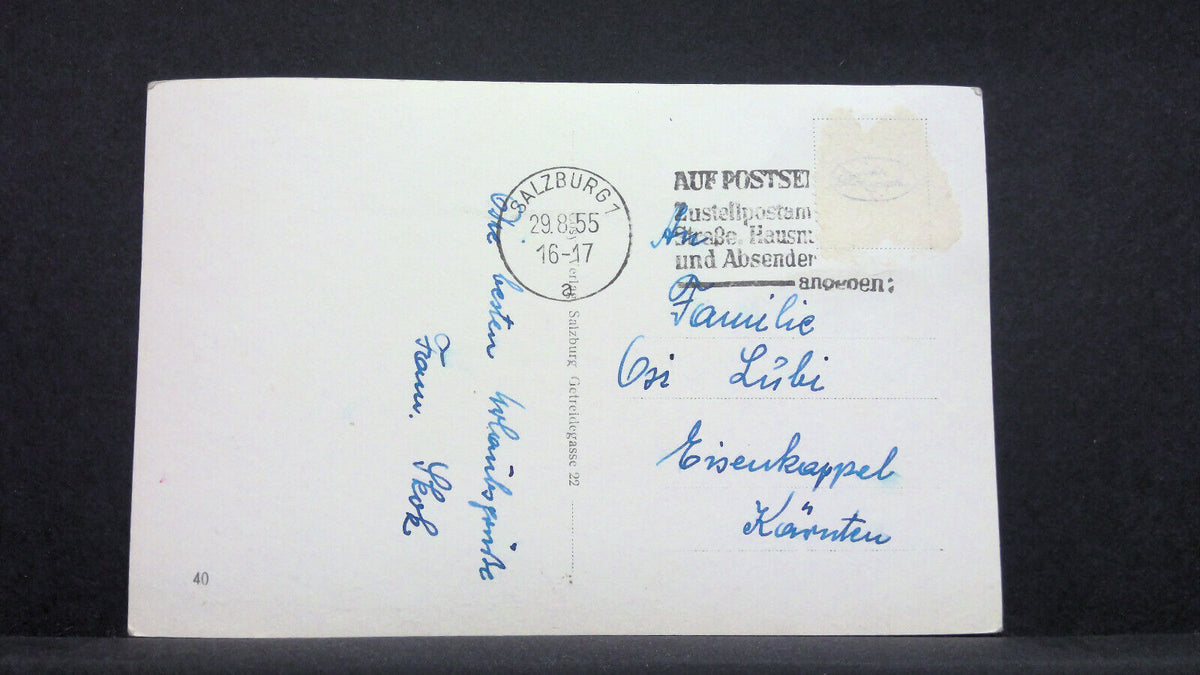 Die besten Urlaubsgrüße
Fam. Skok
SALZBURG 1
29.8.55
16-17
a
AUF POSTSE
Zustellpostam
Straße, Hausn
und Absender
angeben:
An
Familie
Osi Lübi
Eisenkappel
Kärnten
Verlag Salzburg Getreidegasse 22
40